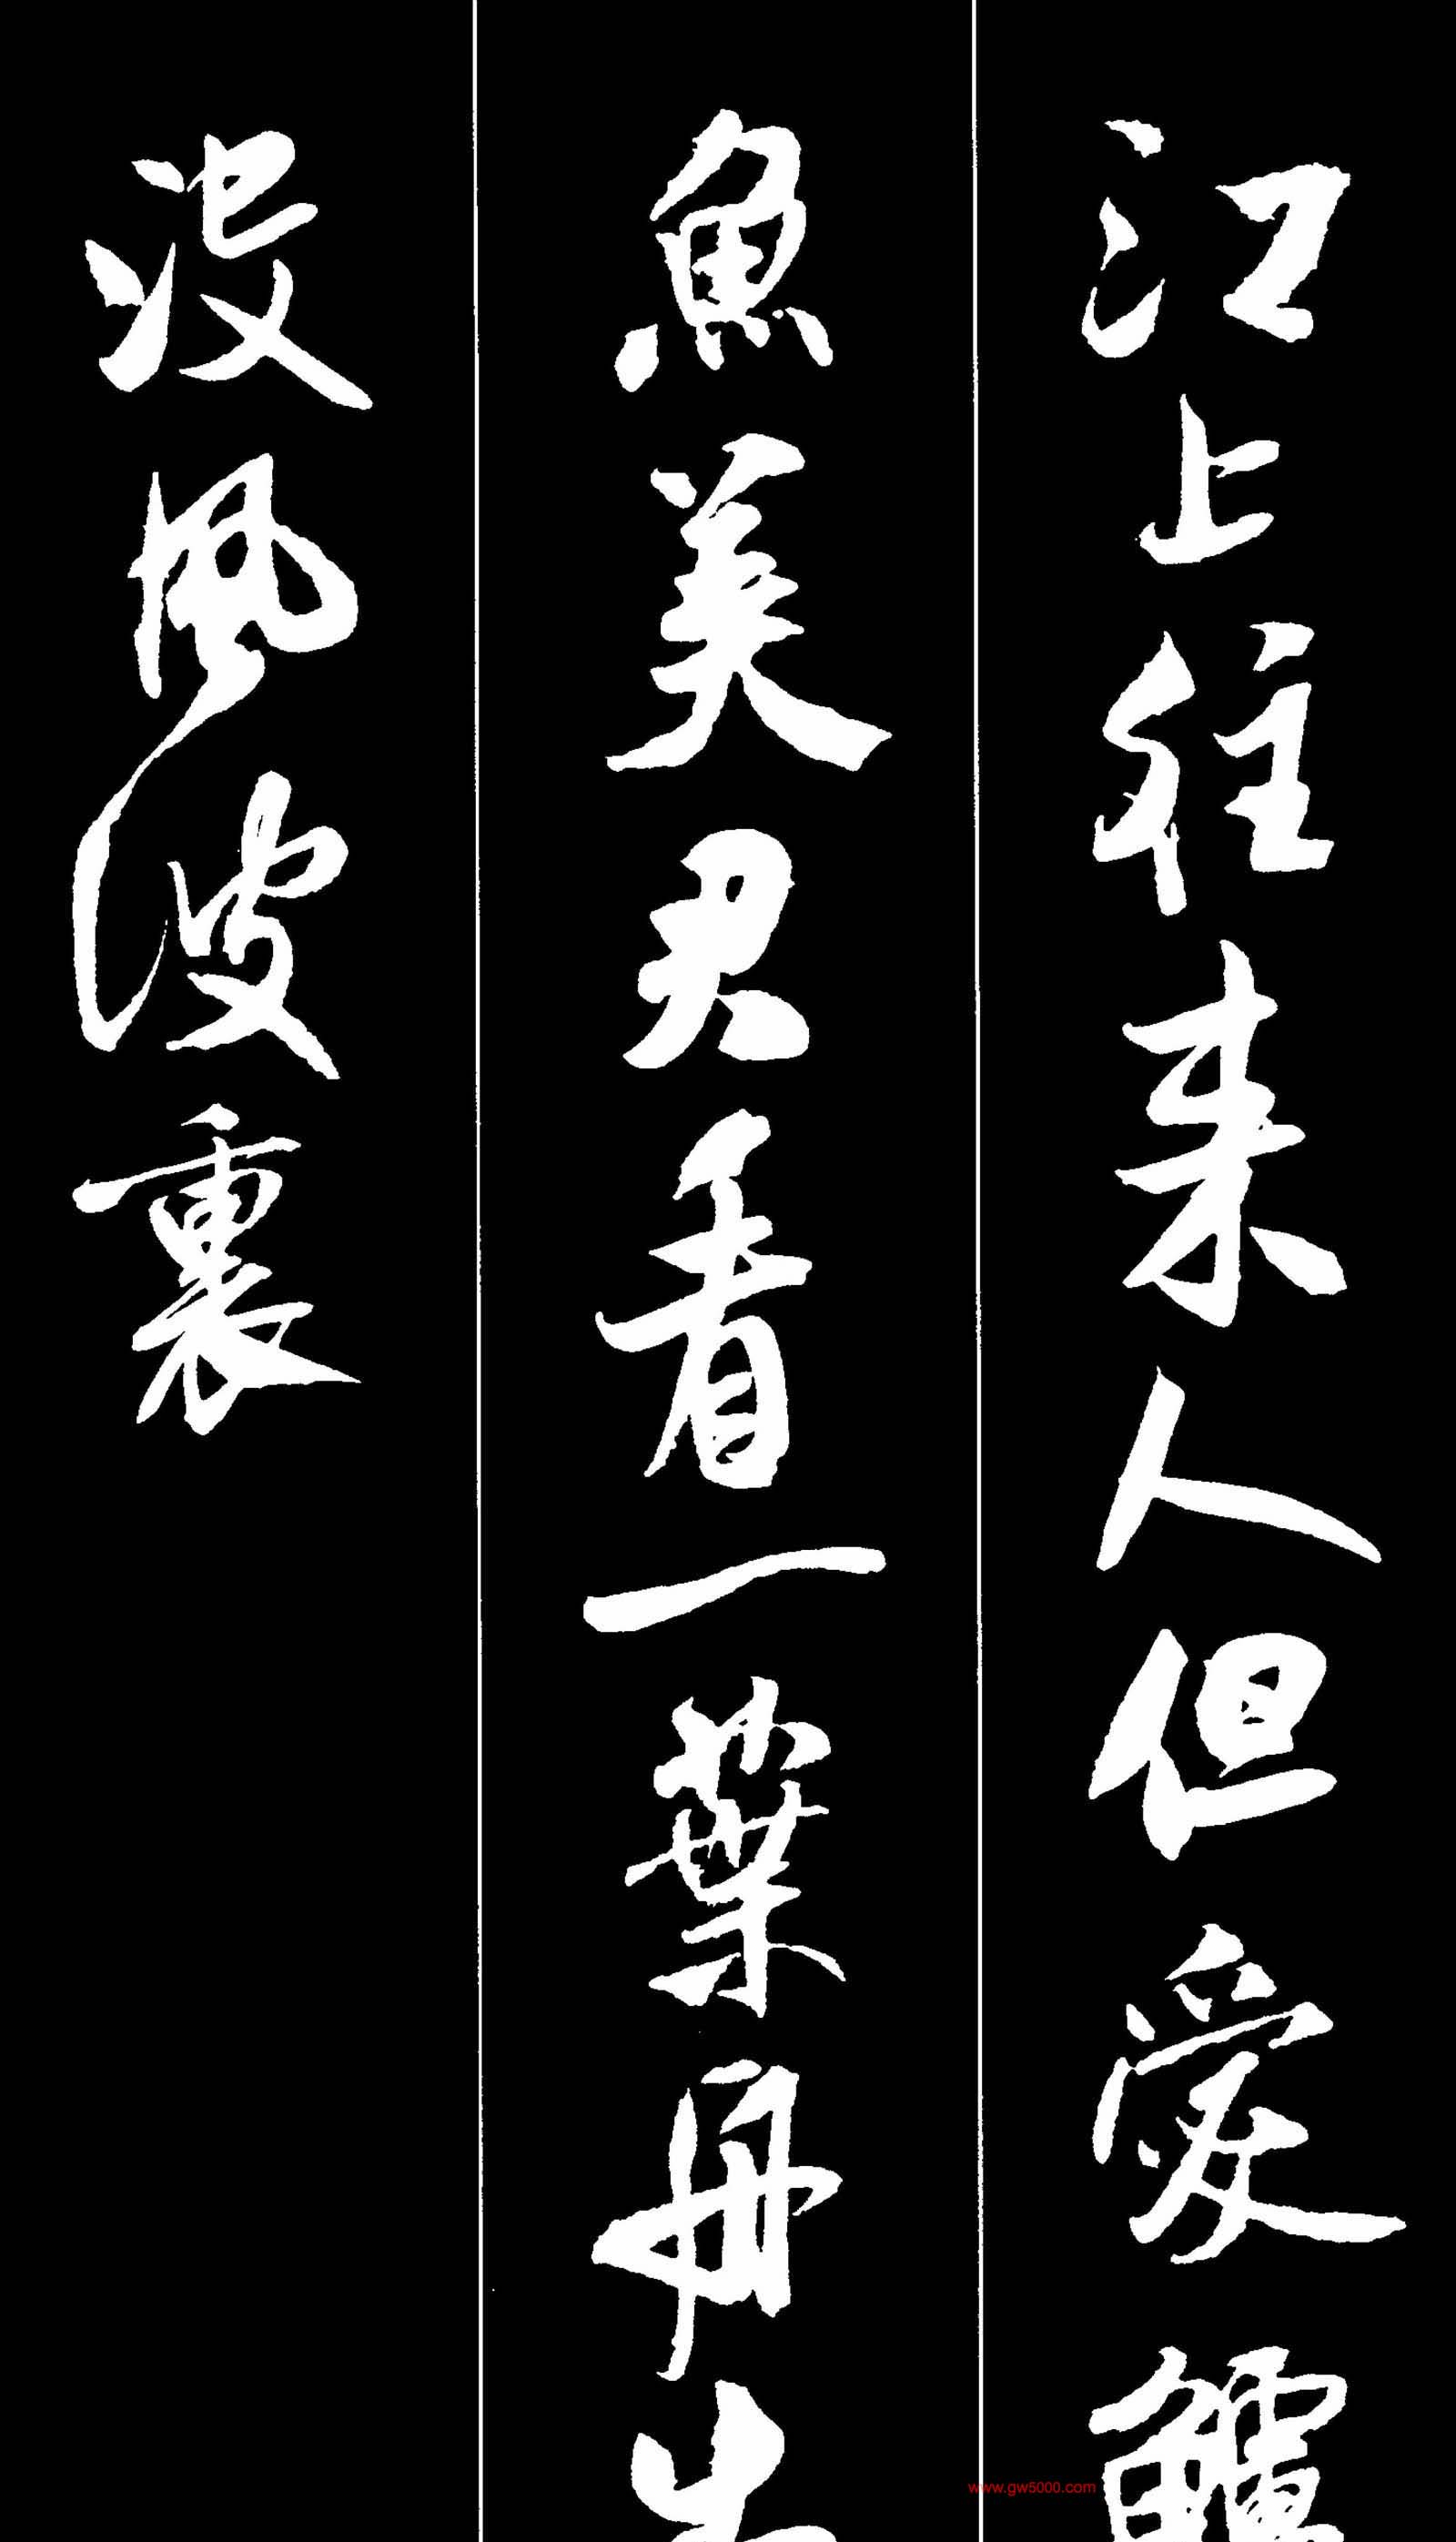 江上往来人但愛鱸
魚美君看一葉舟出
沒風波裏
www.gw5000.com